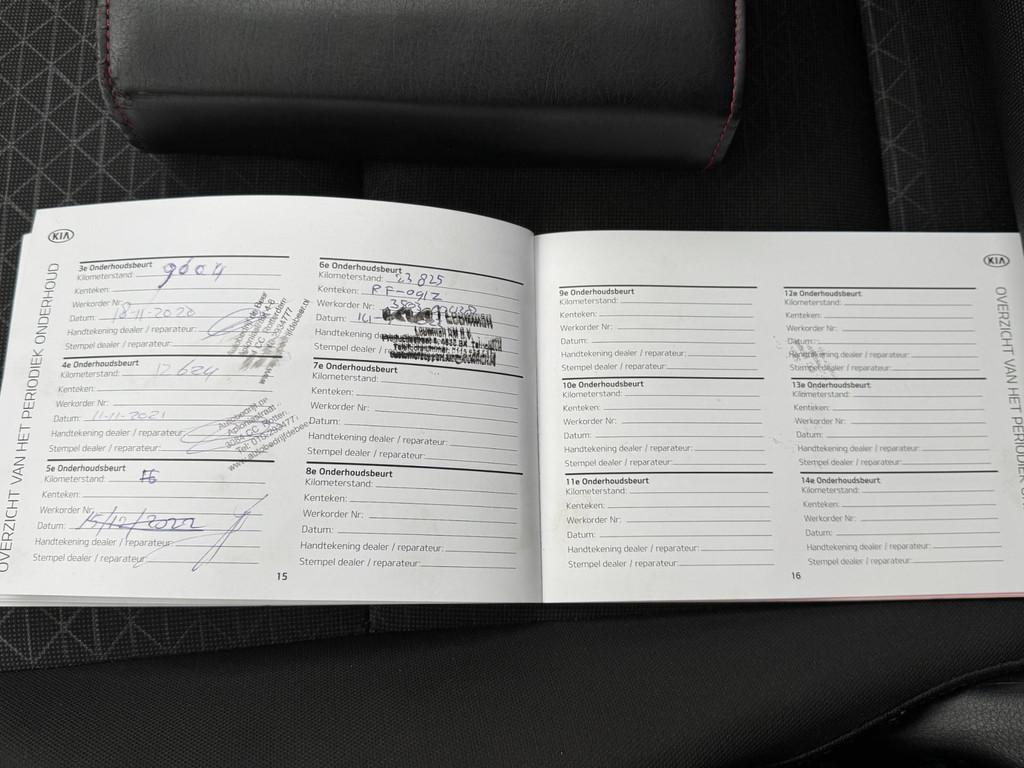 KIA
OVERZICHT VAN HET PERIODIEK ONDERHOUD
3e Onderhoudsbeurt
Kilometerstand: 9604
Kenteken:
Werkorder Nr:
Datum: 18-11-2020
Handtekening dealer / reparateur:
Stempel dealer / reparateur:
4e Onderhoudsbeurt
Kilometerstand: 12624
Kenteken:
Werkorder Nr:
Datum: 11-11-2021
Handtekening dealer / reparateur:
Stempel dealer / reparateur:
5e Onderhoudsbeurt
Kilometerstand:
Kenteken:
Werkorder Nr:
Datum: 15/12/2022
Handtekening dealer / reparateur:
Stempel dealer / reparateur:
6e Onderhoudsbeurt
Kilometerstand: 23825
Kenteken:
Werkorder Nr:
Datum: 14
Handtekening
Stempel dealer
7e Onderhoudsbeurt
Kilometerstand:
Kenteken:
Werkorder Nr:
Datum:
Handtekening dealer / reparateur:
Stempel dealer / reparateur:
8e Onderhoudsbeurt
Kilometerstand:
Kenteken:
Werkorder Nr:
Datum:
Handtekening dealer / reparateur:
Stempel dealer / reparateur:
15
9e Onderhoudsbeurt
Kilometerstand:
Kenteken:
Werkorder Nr:
Datum:
Handtekening dealer / reparateur:
Stempel dealer / reparateur:
10e Onderhoudsbeurt
Kilometerstand:
Kenteken:
Werkorder Nr:
Datum:
Handtekening dealer / reparateur:
Stempel dealer / reparateur:
11e Onderhoudsbeurt
Kilometerstand:
Kenteken:
Werkorder Nr:
Datum:
Handtekening dealer / reparateur:
Stempel dealer / reparateur:
KIA
12e Onderhoudsbeurt
Kilometerstand:
Kenteken:
Werkorder Nr:
Datum:
Handtekening dealer / reparateur:
Stempel dealer / reparateur:
13e Onderhoudsbeurt
Kilometerstand:
Kenteken:
Werkorder Nr:
Datum:
Handtekening dealer / reparateur:
Stempel dealer / reparateur:
14e Onderhoudsbeurt
Kilometerstand:
Kenteken:
Werkorder Nr:
Datum:
Handtekening dealer / reparateur:
Stempel dealer / reparateur:
16
OVERZICHT VAN HET PERIODIEK